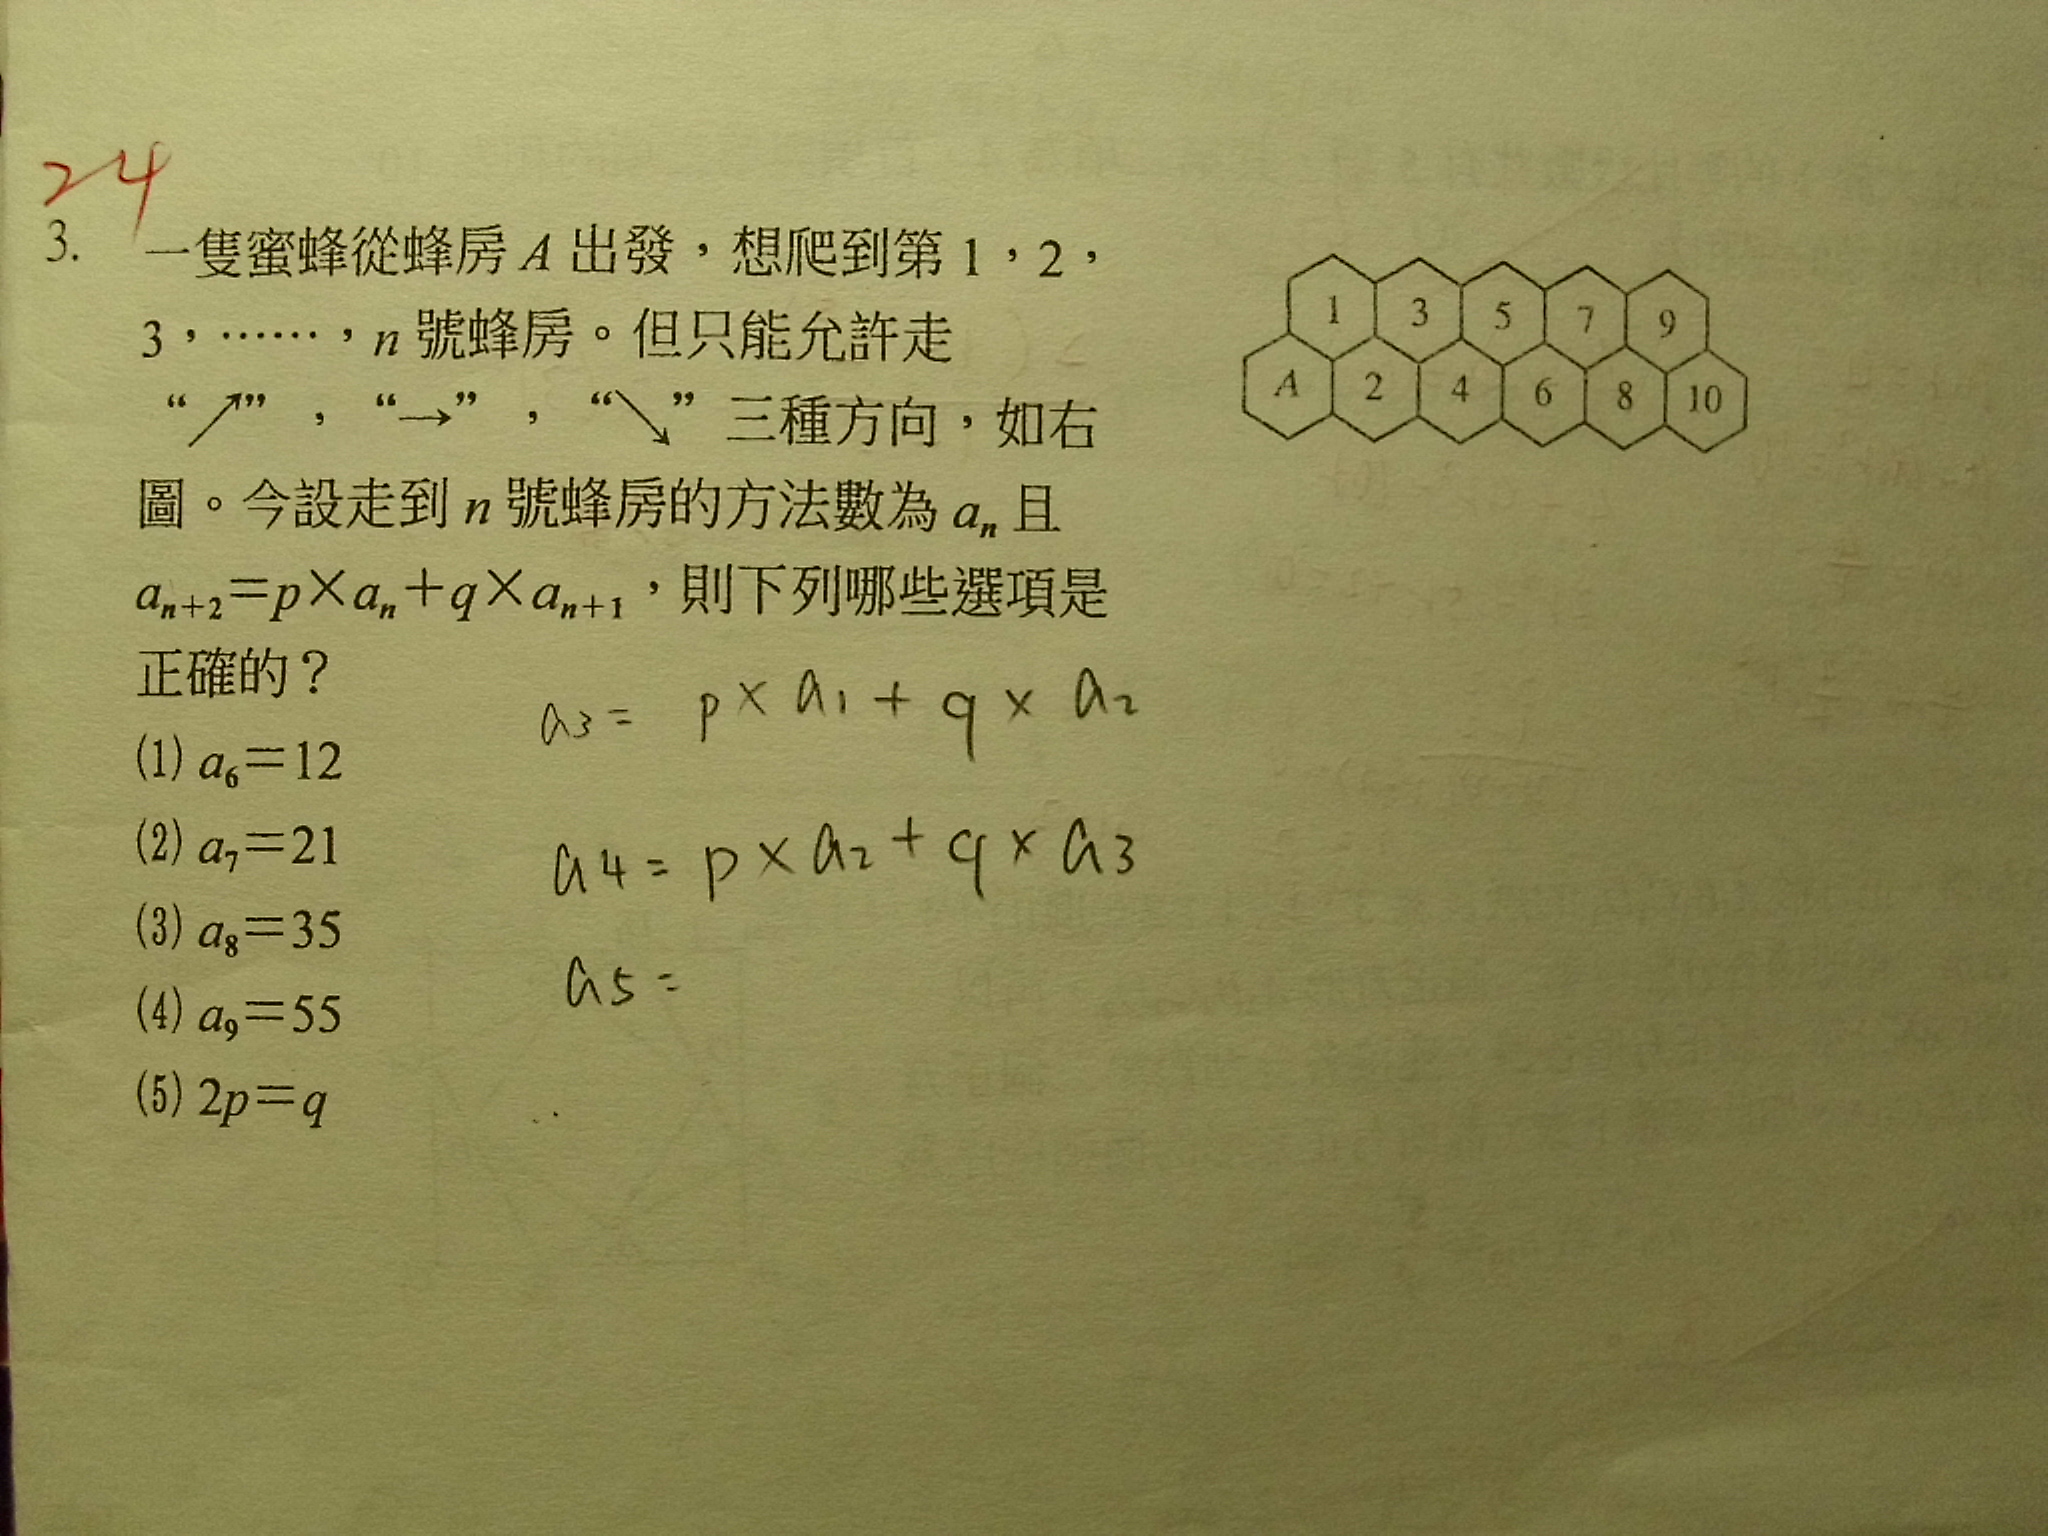 24
3. 一隻蜜蜂從蜂房 A 出發，想爬到第 1，2，
3，……，n 號蜂房。但只能允許走
“↗”，“→”，“↘”三種方向，如右
圖。今設走到 n 號蜂房的方法數為 aₙ 且
aₙ₊₂＝p×aₙ＋q×aₙ₊₁，則下列哪些選項是
正確的？
(1) a₆＝12
(2) a₇＝21
(3) a₈＝35
(4) a₉＝55
(5) 2p＝q
1 3 5 7 9
A 2 4 6 8 10
a3 = p × a1 + q × a2
a4 = p × a2 + q × a3
a5 =